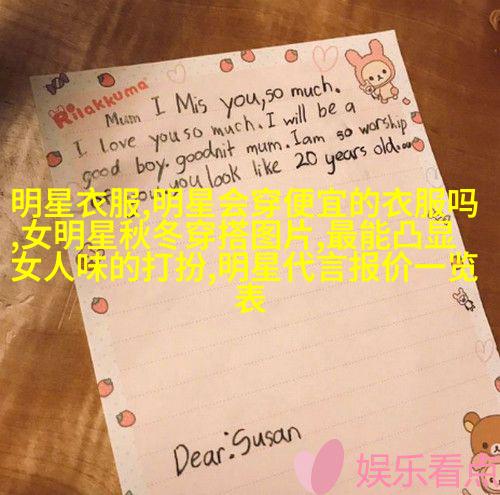 Rilakkuma
Mum I Mis you,so much.
I love you so much. I will be a
good boy. goodnit mum. I am so worship
you look like 20 years old.
明星衣服,明星会穿便宜的衣服吗
,女明星秋冬穿搭图片,最能凸显
女人味的打扮,明星代言报价一览
表
Dear:Susan
娱乐看点